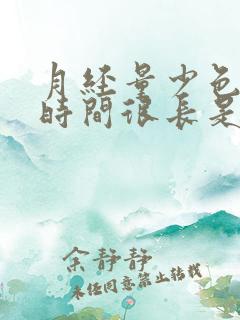 月經量少色
時間很長是
余靜靜
未任同意禁止转载